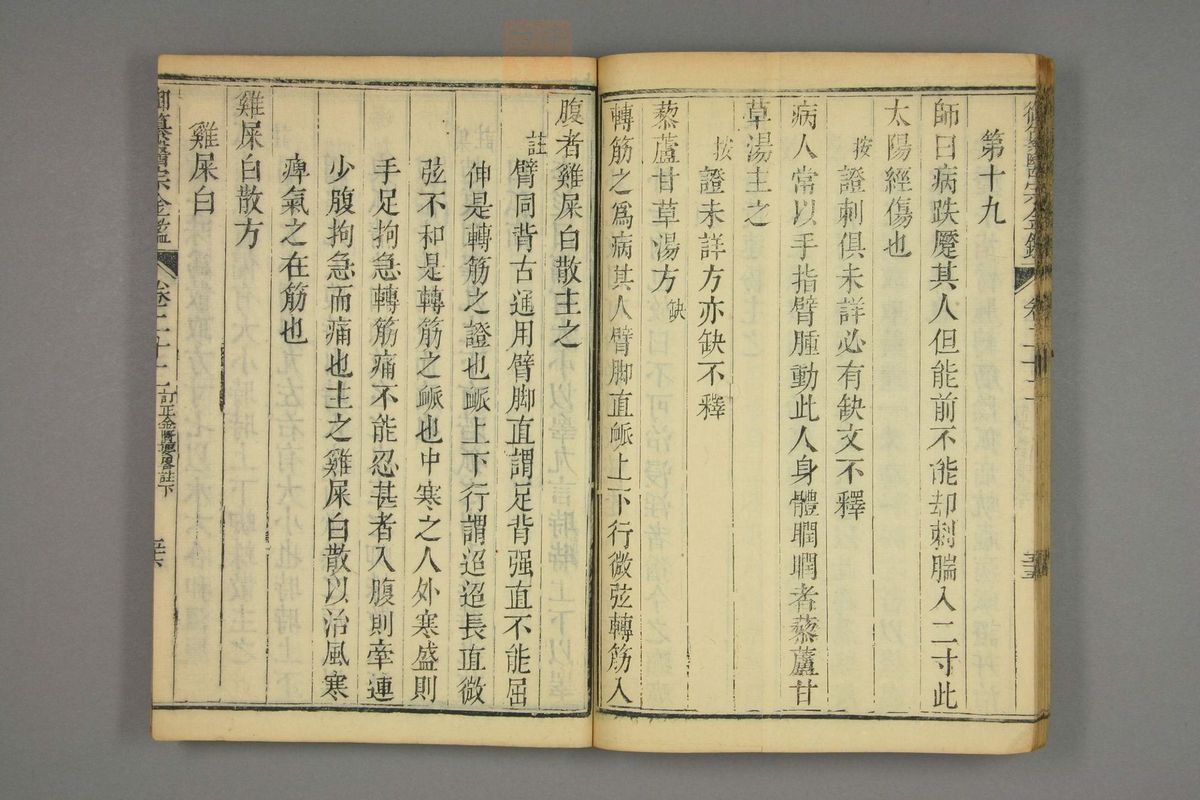 第十九
師曰病跌蹷其人但能前不能却刺腨入二寸此
太陽經傷也
按 證刺俱未詳必有缺文不釋
病人當以手指臂腫動此人身體瞤瞤者藜蘆甘
草湯主之
按 證未詳方亦缺不釋
藜蘆甘草湯方 缺
轉筋之爲病其人臂脚直脈上下行微弦轉筋入
腹者雞屎白散主之
註 臂同背古通用臂脚直謂足背强直不能屈
伸是轉筋之證也脈上下行謂迢迢長直微
弦不和是轉筋之脈也中寒之人外寒盛則
手足拘急轉筋痛不能忍甚者入腹則牽連
少腹拘急而痛也主之雞屎白散以治風寒
痺氣之在筋也
雞屎白散方
雞屎白
御纂醫宗金鑑 卷二十二 訂正金匱要畧註下